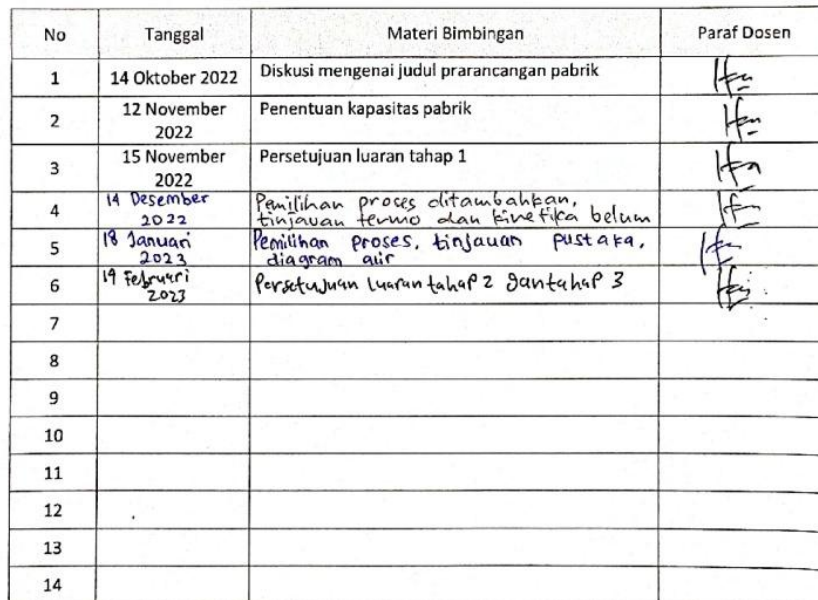 No Tanggal Materi Bimbingan Paraf Dosen
1 14 Oktober 2022 Diskusi mengenai judul prarancangan pabrik
2 12 November 2022 Penentuan kapasitas pabrik
3 15 November 2022 Persetujuan luaran tahap 1
4 14 Desember 2022 Pemilihan proses ditambahkan,
tinjauan termo dan kinetika belum
5 18 Januari 2023 Pemilihan proses, tinjauan pustaka,
diagram alir
6 19 Februari 2023 Persetujuan luaran tahap 2 dan tahap 3
7
8
9
10
11
12
13
14